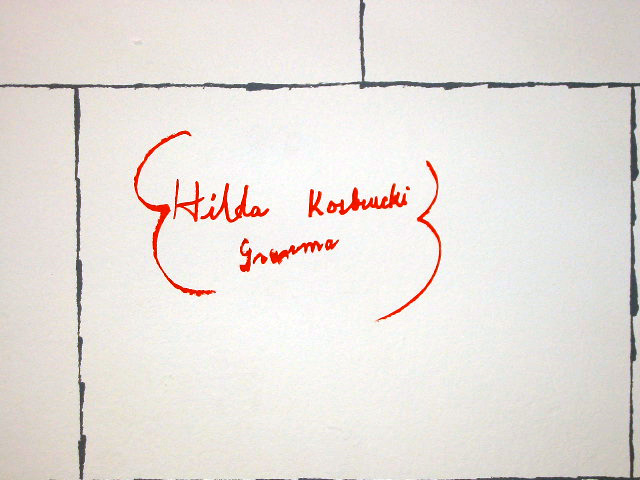 Hilda Korbrucki
Granma